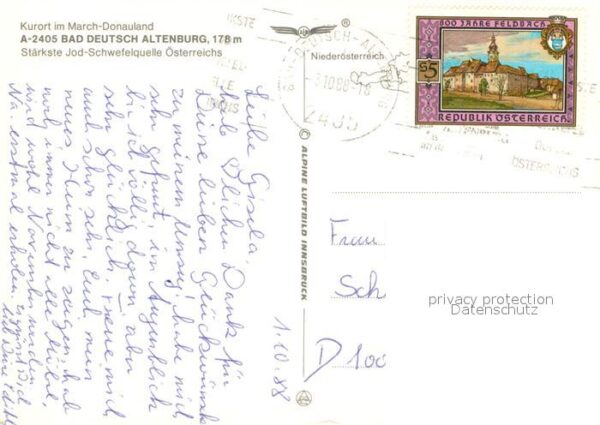 Kurort im March-Donauland
A-2405 BAD DEUTSCH ALTENBURG, 178 m
Stärkste Jod-Schwefelquelle Österreichs
Niederösterreich
800 JAHRE FELDBACH
S5
REPUBLIK ÖSTERREICH
2405
ÖSTERREICHS
© ALPINE LUFTBILD INNSBRUCK
Liebe Gisela,
hab Dank für
Deine lieben Glückwünsche
zu meinem Umzug, habe mich
sehr gefreut, im Augenblick
bin ich völlig down, aber
sehr glücklich, freue mich
auch schon sehr, Euch mein
neues Heim zu zeigen, hab
noch immer nicht alle Möbel,
wird wohl November werden
1.10.88
Frau
Sch
D 100
privacy protection
Datenschutz